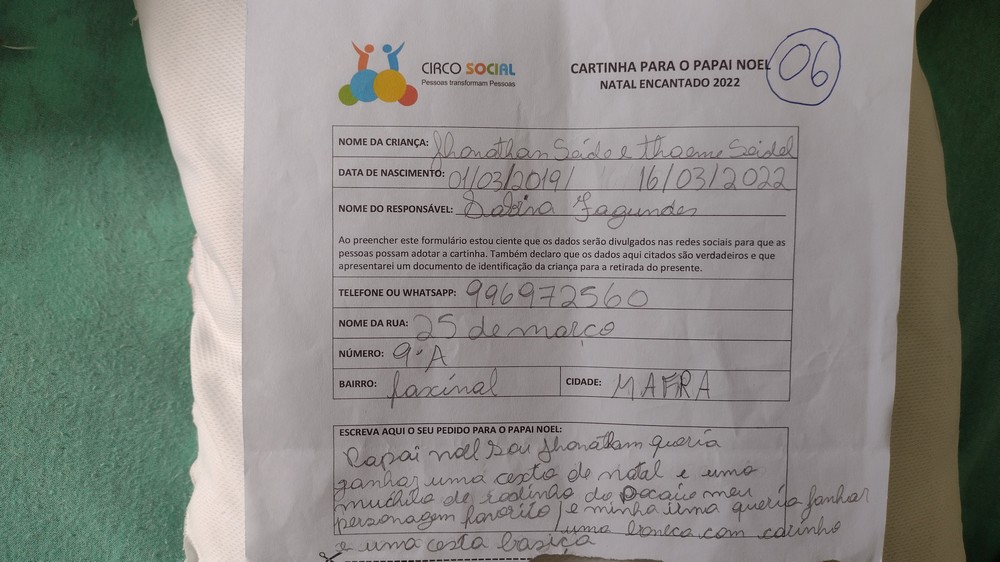 CIRCO SOCIAL
Pessoas transformam Pessoas
CARTINHA PARA O PAPAI NOEL
NATAL ENCANTADO 2022
06
NOME DA CRIANÇA: Jhonathan Seidel e Thaeme Seidel
DATA DE NASCIMENTO: 01/03/2019/ 16/03/2022
NOME DO RESPONSÁVEL: Sabina Fagundes
Ao preencher este formulário estou ciente que os dados serão divulgados nas redes sociais para que as
pessoas possam adotar a cartinha. Também declaro que os dados aqui citados são verdadeiros e que
apresentarei um documento de identificação da criança para a retirada do presente.
TELEFONE OU WHATSAPP: 996972560
NOME DA RUA: 25 de março
NÚMERO: 9º A
BAIRRO: faxinal CIDADE: MAFRA
ESCREVA AQUI O SEU PEDIDO PARA O PAPAI NOEL:
Papai noel sou Jhonatham queria
ganhar uma cesta de natal e uma
muchila de rodinha do meu
personagem favorito e minha irma queria ganhar
uma boneca com carinho
e uma cesta basica